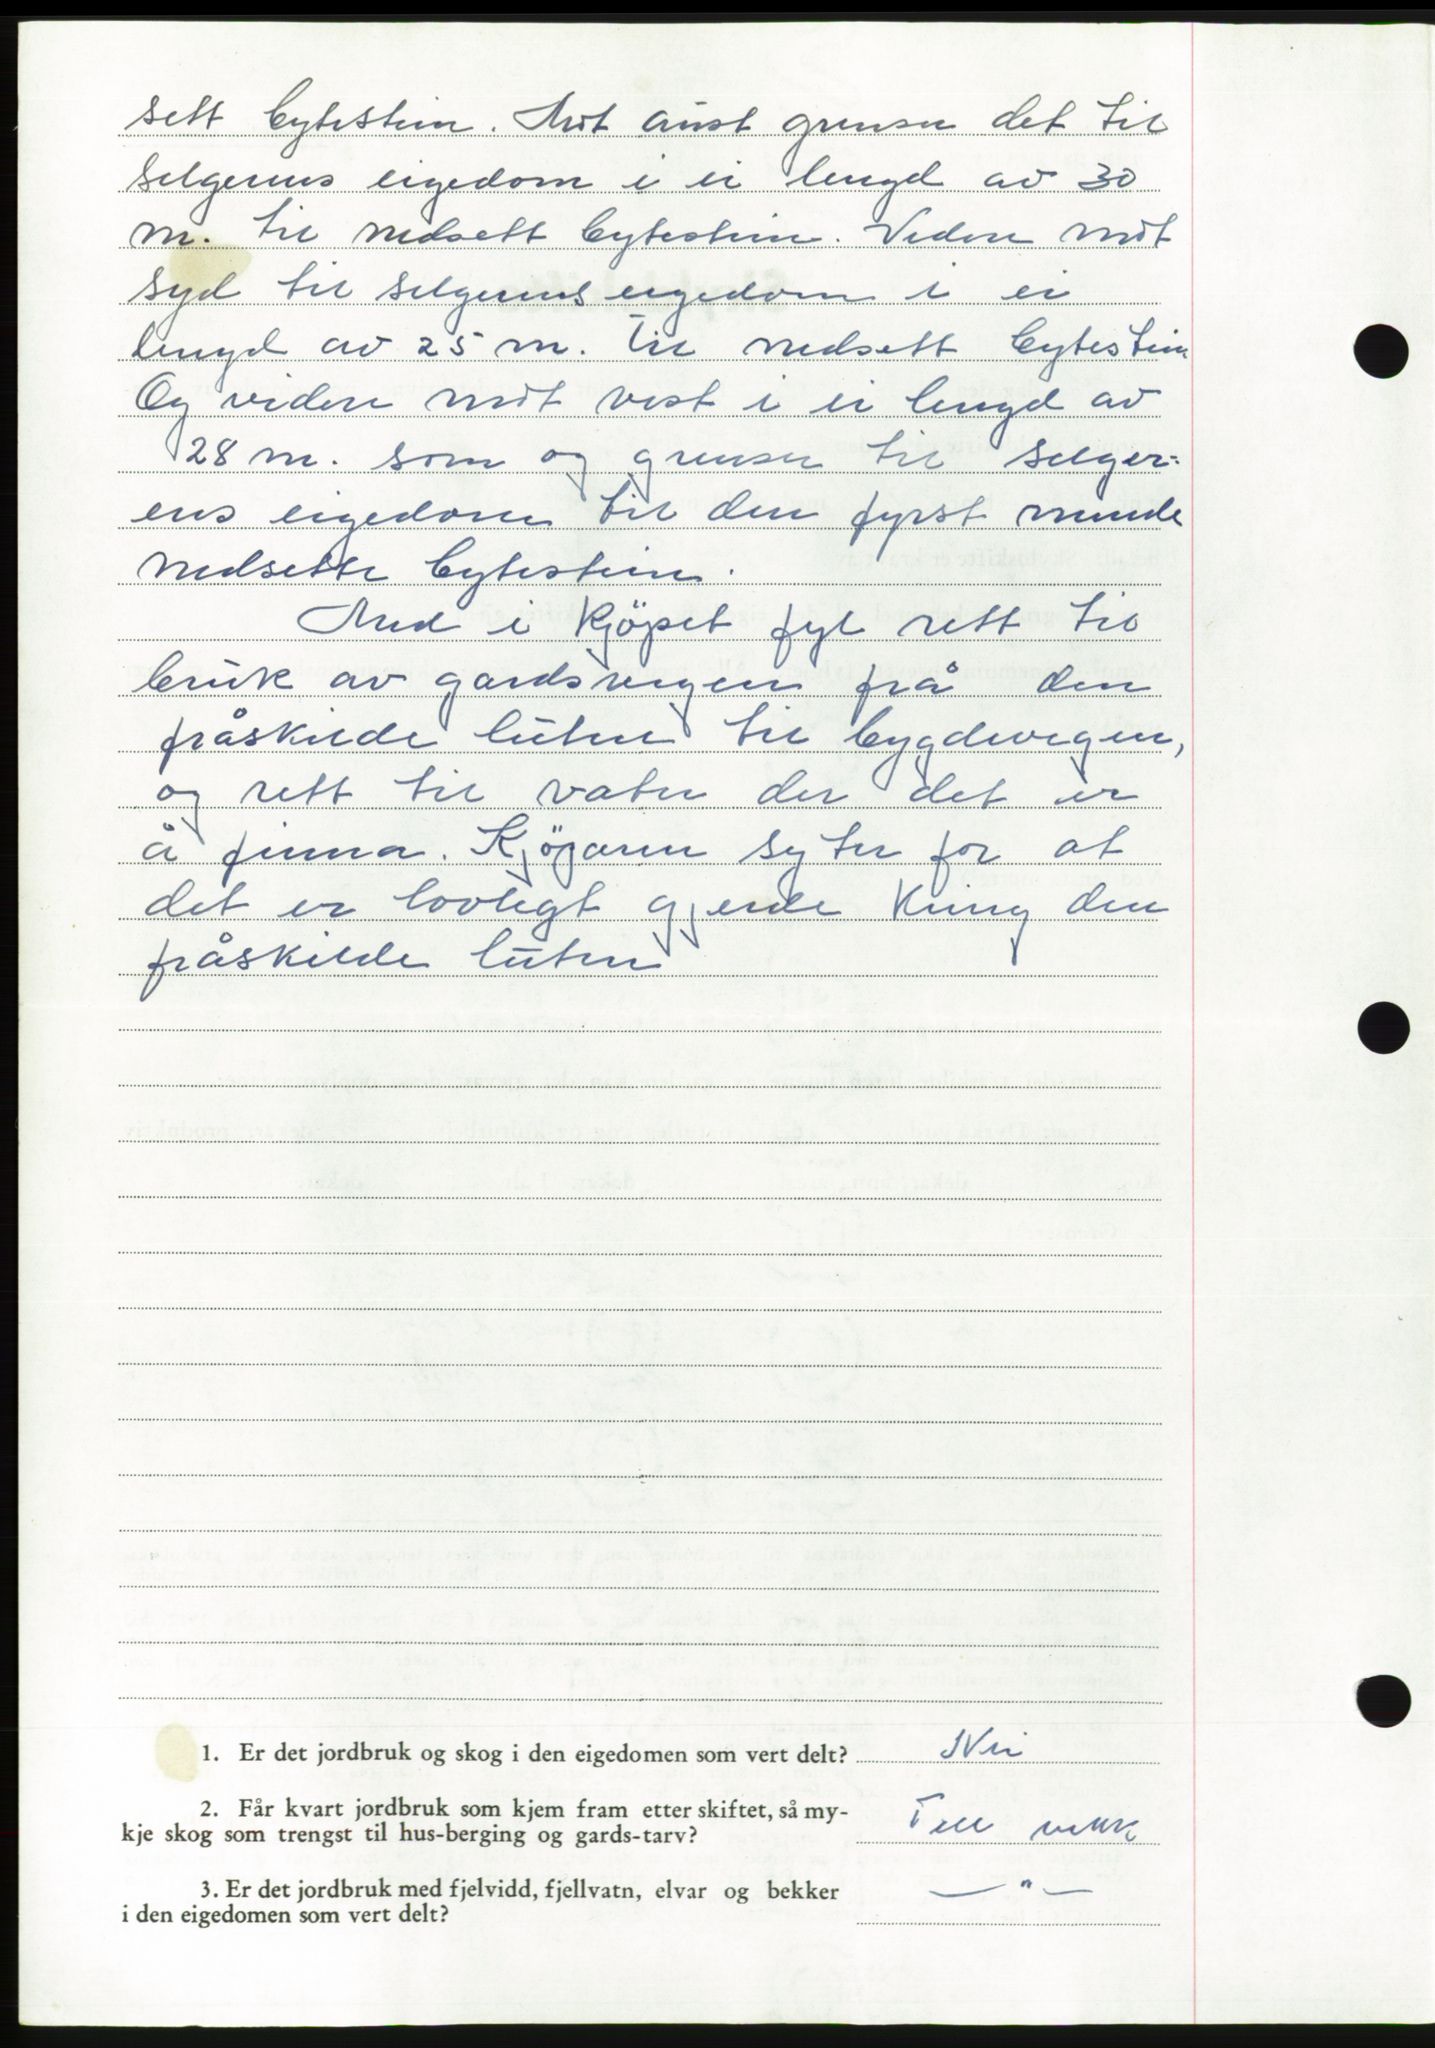 sett bytestein. Mot aust grenser det til
selgerens eigedom i ei lengd av 30
m. til nedsett bytestein. Videre mot
syd til selgerens eigedom i ei
lengd av 25 m. til nedsett bytestein
Og videre mot vest i ei lengd av
28 m. som og grenser til selger=
ens eigedom til den fyrst nemde
nedsette bytestein.
Med i kjöpet fyl rett til
bruk av gardsvegen frå den
fråskilde luten til bygdevegen,
og rett til vatn der det er
å finna. Kjöparen syter for at
det er lovlegt gjerde kring den
fråskilde luten
1. Er det jordbruk og skog i den eigedomen som vert delt? Nei
2. Får kvart jordbruk som kjem fram etter skiftet, så my-
kje skog som trengst til hus-berging og gards-tarv? Fell vekk
3. Er det jordbruk med fjelvidd, fjellvatn, elvar og bekker — " —
i den eigedomen som vert delt?